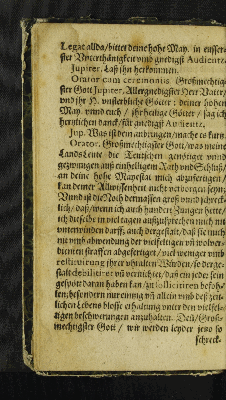 Legat allda/ bittet deine hohe May. in eusser-
ster Vnterthänigkeit vmb gnedigst Audientz.
Jupiter. Laß ihn herkommen.
Orator cum ceremoniis. Großmechtig-
ster Gott Jupiter, Allergnedigster Herr Vatter/
vnd ihr vnsterbliche Götter: deiner hohen
May. vnd euch / ihr heilige Götter / sag ich
hertzlichen danck/ für gnedigst Audientz.
Jup. Was ist dein anbringen/ mache es kurtz.
Orator. Großmechtigster Gott/ was meine
LandsLeute die Teutschen genötiget vnnd
gezwungen auß einhelligem Rath vnd Schluß/
an deine hohe Mayestat mich abzufertigen /
kan deiner Allwissenheit nicht verborgen seyn/
Vnnd ist die Noth dermassen groß vnd schreck-
lich/ daß/ wenn ich auch hundert Zungen hette/
ich dieselbe in viel tagen außzusprechen mich nit
vnterwinden darff/ auch dergestalt/ daß sie nicht
mit abwendung der vielfeltigen vñ wolver-
dienten straffen abgefertiget / viel weniger vmb
restituirung ihrer vhralten Würden/ so derge-
stalt debilitiret vñ vernichtet/ daß ein jeder sein
gespött daran haben kan/ zu sollicitiren befoh-
len; besondern nur einig vñ allein vmb deß zeit-
lichen Lebens blosse erhaltung vnter den vielfel-
tigen beschwerungen anzuhalten. Deñ/ Groß-
mechtigster Gott / wir werden leyder jetzo so
schreck-